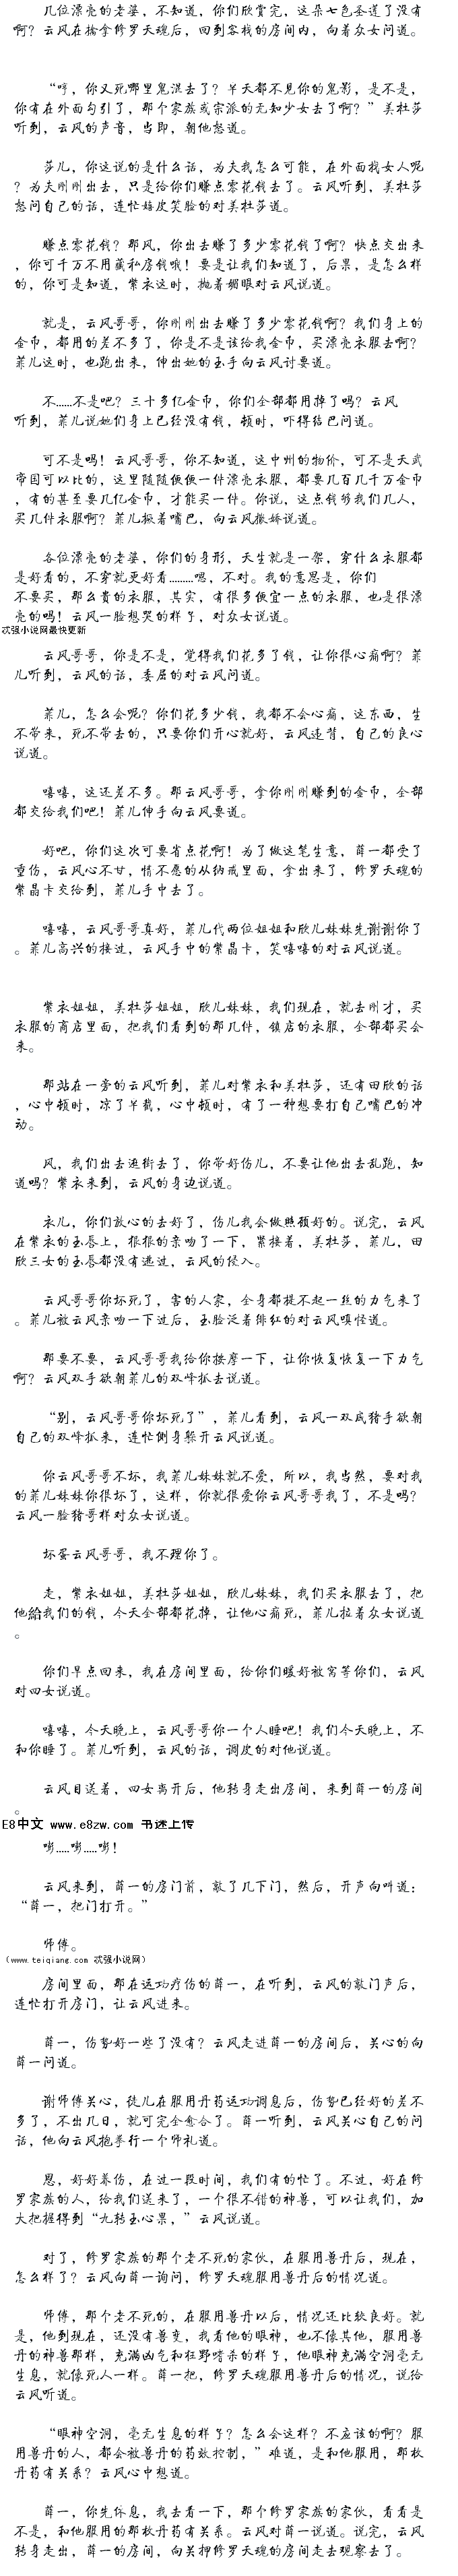 几位漂亮的老婆，不知道，你们欣赏完，这朵七色圣莲了没有
啊？云风在擒拿修罗天魂后，回到客栈的房间内，向着众女问道。
“哼，你又死哪里鬼混去了？半天都不见你的鬼影，是不是，
你有在外面勾引了，那个家族或宗派的无知少女去了啊？”美杜莎
听到，云风的声音，当即，朝他怒道。
莎儿，你这说的是什么话，为夫我怎么可能，在外面找女人呢
？为夫刚刚出去，只是给你们赚点零花钱去了。云风听到，美杜莎
怒问自己的话，连忙嬉皮笑脸的对美杜莎道。
赚点零花钱？那风，你出去赚了多少零花钱了啊？快点交出来
，你可千万不用藏私房钱哦！要是让我们知道了，后果，是怎么样
的，你可是知道，紫衣这时，抛着媚眼对云风说道。
就是，云风哥哥，你刚刚出去赚了多少零花钱啊？我们身上的
金币，都用的差不多了，你是不是该给我金币，买漂亮衣服去啊？
菲儿这时，也跑出来，伸出她的玉手向云风讨要道。
不……不是吧？三十多亿金币，你们全部都用掉了吗？云风
听到，菲儿说她们身上已经没有钱，顿时，吓得结巴问道。
可不是吗！云风哥哥，你不知道，这中州的物价，可不是天武
帝国可以比的，这里随随便便一件漂亮衣服，都要几百几千万金币
，有的甚至要几亿金币，才能买一件。你说，这点钱够我们几人，
买几件衣服啊？菲儿掀着嘴巴，向云风撒娇说道。
各位漂亮的老婆，你们的身形，天生就是一架，穿什么衣服都
是好看的，不穿就更好看………嗯，不对。我的意思是，你们
不要买，那么贵的衣服，其实，有很多便宜一点的衣服，也是很漂
亮的吗！云风一脸想哭的样子，对众女说道。
忒强小说网最快更新
云风哥哥，你是不是，觉得我们花多了钱，让你很心痛啊？菲
儿听到，云风的话，委屈的对云风问道。
菲儿，怎么会呢？你们花多少钱，我都不会心痛，这东西，生
不带来，死不带去的，只要你们开心就好，云风违背，自己的良心
说道。
嘻嘻，这还差不多。那云风哥哥，拿你刚刚赚到的金币，全部
都交给我们吧！菲儿伸手向云风要道。
好吧，你们这次可要省点花啊！为了做这笔生意，薛一都受了
重伤，云风心不甘，情不愿的从纳戒里面，拿出来了，修罗天魂的
紫晶卡交给到，菲儿手中去了。
嘻嘻，云风哥哥真好，菲儿代两位姐姐和欣儿妹妹先谢谢你了
。菲儿高兴的接过，云风手中的紫晶卡，笑嘻嘻的对云风说道。
紫衣姐姐，美杜莎姐姐，欣儿妹妹，我们现在，就去刚才，买
衣服的商店里面，把我们看到的那几件，镇店的衣服，全部都买会
来。
那站在一旁的云风听到，菲儿对紫衣和美杜莎，还有田欣的话
，心中顿时，凉了半截，心中顿时，有了一种想要打自己嘴巴的冲
动。
风，我们出去逛街去了，你带好伤儿，不要让他出去乱跑，知
道吗？紫衣来到，云风的身边说道。
衣儿，你们放心的去好了，伤儿我会做照顾好的。说完，云风
在紫衣的玉唇上，狠狠的亲吻了一下，紧接着，美杜莎，菲儿，田
欣三女的玉唇都没有逃过，云风的侵入。
云风哥哥你坏死了，害的人家，全身都提不起一丝的力气来了
。菲儿被云风亲吻一下过后，玉脸泛着绯红的对云风嗔怪道。
那要不要，云风哥哥我给你按摩一下，让你恢复恢复一下力气
啊？云风双手欲朝菲儿的双峰抓去说道。
“别，云风哥哥你坏死了”，菲儿看到，云风一双咸猪手欲朝
自己的双峰抓来，连忙侧身躲开云风说道。
你云风哥哥不坏，我菲儿妹妹就不爱，所以，我当然，要对我
的菲儿妹妹你很坏了，这样，你就很爱你云风哥哥我了，不是吗？
云风一脸猪哥样对众女说道。
坏蛋云风哥哥，我不理你了。
走，紫衣姐姐，美杜莎姐姐，欣儿妹妹，我们买衣服去了，把
他給我们的钱，今天全部都花掉，让他心痛死，菲儿拉着众女说道
。
你们早点回来，我在房间里面，给你们暖好被窝等你们，云风
对四女说道。
嘻嘻，今天晚上，云风哥哥你一个人睡吧！我们今天晚上，不
和你睡了。菲儿听到，云风的话，调皮的对他说道。
云风目送着，四女离开后，他转身走出房间，来到薛一的房间
。
E8中文 www.e8zw.com 书迷上传
嘭……嘭……嘭！
云风来到，薛一的房门前，敲了几下门，然后，开声向叫道：
“薛一，把门打开。”
师傅。
（www.teiqiang.com 忒强小说网）
房间里面，那在运功疗伤的薛一，在听到，云风的敲门声后，
连忙打开房门，让云风进来。
薛一，伤势好一些了没有？云风走进薛一的房间后，关心的向
薛一问道。
谢师傅关心，徒儿在服用丹药运功调息后，伤势已经好的差不
多了，不出几日，就可完全愈合了。薛一听到，云风关心自己的问
话，他向云风抱拳行一个师礼道。
恩，好好养伤，在过一段时间，我们有的忙了。不过，好在修
罗家族的人，给我们送来了，一个很不错的神兽，可以让我们，加
大把握得到“九转玉心果，”云风说道。
对了，修罗家族的那个老不死的家伙，在服用兽丹后，现在，
怎么样了？云风向薛一询问，修罗天魂服用兽丹后的情况道。
师傅，那个老不死的，在服用兽丹以后，情况还比较良好。就
是，他到现在，还没有兽变，我看他的眼神，也不像其他，服用兽
丹的神兽那样，充满凶气和狂野嗜杀的样子，他眼神充满空洞毫无
生息，就像死人一样。薛一把，修罗天魂服用兽丹后的情况，说给
云风听道。
“眼神空洞，毫无生息的样子？怎么会这样？不应该的啊？服
用兽丹的人，都会被兽丹的药效控制，”难道，是和他服用，那枚
丹药有关系？云风心中想道。
薛一，你先休息，我去看一下，那个修罗家族的家伙，看看是
不是，和他服用的那枚丹药有关系。云风对薛一说道。说完，云风
转身走出，薛一的房间，向关押修罗天魂的房间走去观察去了。